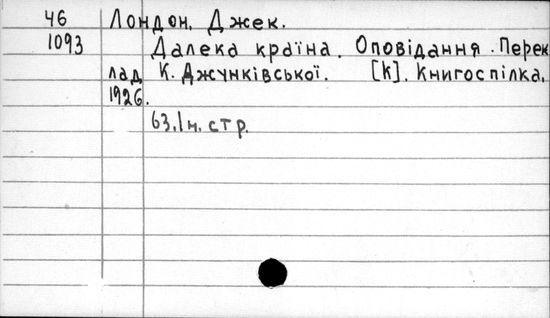 46 Лондон, Джек.
1093 Далека країна. Оповідання. Перек
лад К. Джунківської. [К]. Книгоспілка,
1926.
63.1н. стр.